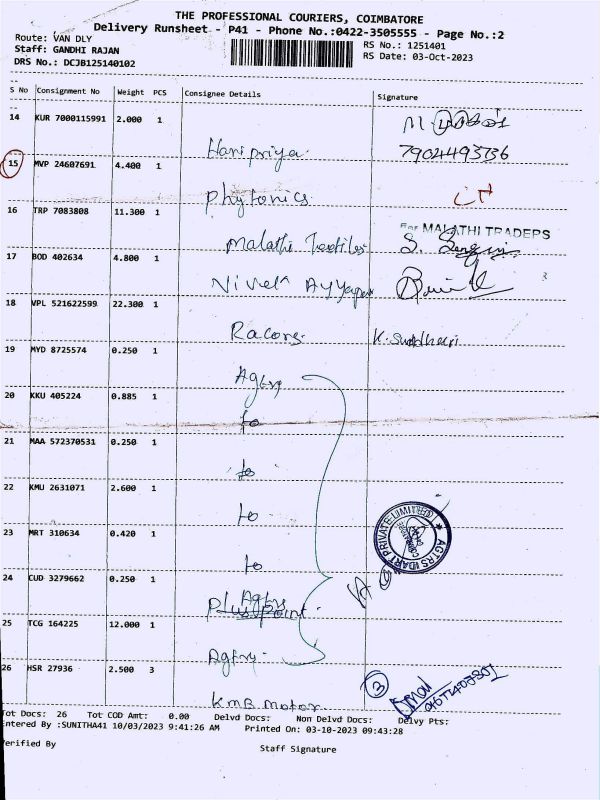 THE PROFESSIONAL COURIERS, COIMBATORE
Delivery Runsheet - P41 - Phone No.:0422-3505555 - Page No.:2
Route: VAN DLY
RS No.: 1251401
Staff: GANDHI RAJAN
RS Date: 03-Oct-2023
DRS No.: DCJB125140102
S No Consignment No Weight PCS Consignee Details Signature
14 KUR 7000115991 2.000 1
Haripriya 7904493736
15 MVP 24607691 4.400 1
Phytonics
16 TRP 7083808 11.300 1
For MALATHI TRADERS
Malathi Textiles S.
17 BOD 402634 4.800 1
Vivek Ayyapan
18 VPL 521622599 22.300 1
Racons K. Sundhari
19 MYD 8725574 0.250 1
Agtry
20 KKU 405224 0.885 1
to
21 MAA 572370531 0.250 1
to
22 KMU 2631071 2.600 1
to
23 MRT 310634 0.420 1
to
AGTRS IDART PRIVATE LIMITED
24 CUD 3279662 0.250 1
Plus Point
25 TCG 164225 12.000 1
Agtry
26 HSR 27936 2.500 3
3
KMB Motor
Tot Docs: 26 Tot COD Amt: 0.00 Delvd Docs: Non Delvd Docs: Delvy Pts:
Entered By :SUNITHA41 10/03/2023 9:41:26 AM Printed On: 03-10-2023 09:43:28
Verified By
Staff Signature